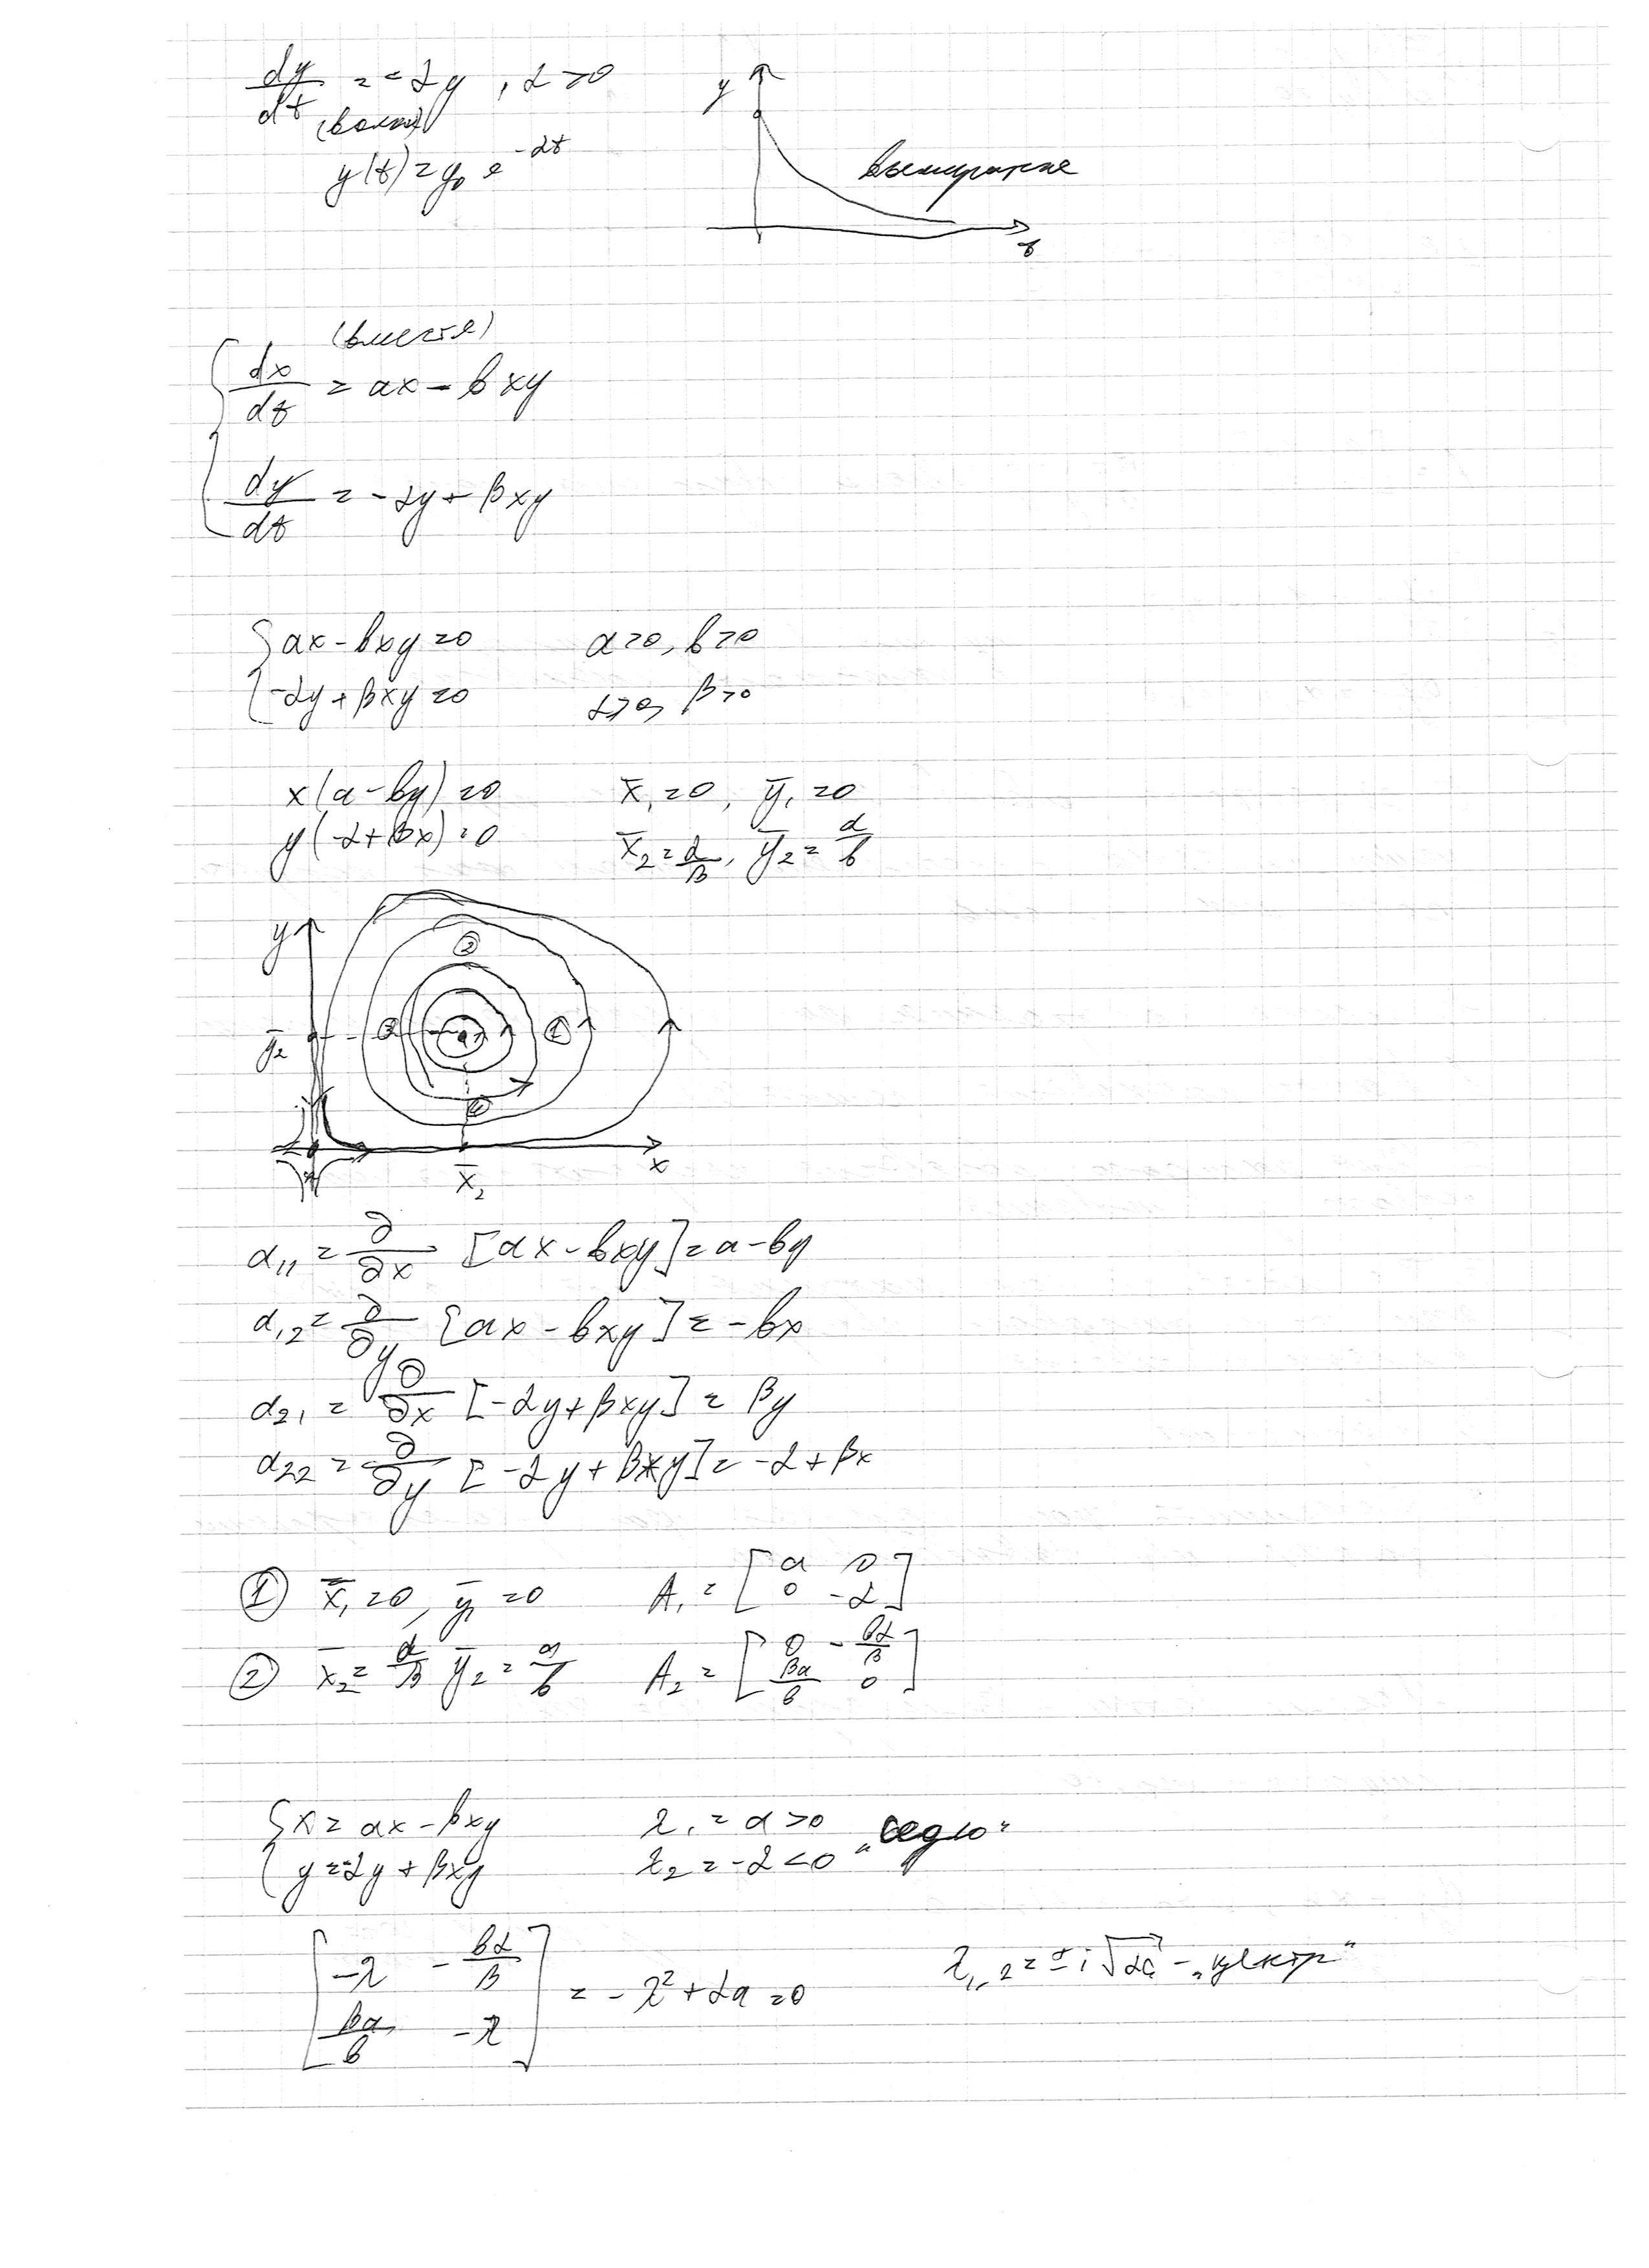 dy/dt = -αy, α>0
(волки)
y(t)=y₀ e^(-αt)
y
вымирание
t
(вместе)
dx/dt = ax - bxy
dy/dt = -αy + βxy
{ax - bxy = 0 a>0, b>0
{-αy + βxy = 0 α>0, β>0
x(a - by) = 0 x̄₁=0, ȳ₁=0
y(-α+βx)=0 x̄₂=α/β, ȳ₂=a/b
y
②
ȳ₂ ③ ①
④
x̄₂ x
a₁₁ = ∂/∂x [ax - bxy] = a - by
a₁₂ = ∂/∂y [ax - bxy] = -bx
a₂₁ = ∂/∂x [-αy + βxy] = βy
a₂₂ = ∂/∂y [-αy + βxy] = -α + βx
① x̄₁=0, ȳ₁=0 A₁ = [a 0; 0 -α]
② x̄₂=α/β ȳ₂=a/b A₂ = [0 -bα/β; βa/b 0]
{x = ax - βxy λ₁ = a > 0
{y = -αy + βxy λ₂ = -α < 0 „седло“
[-λ -bα/β; βa/b -λ] = -λ² + αa = 0 λ₁,₂ = ± i√αa - „центр“